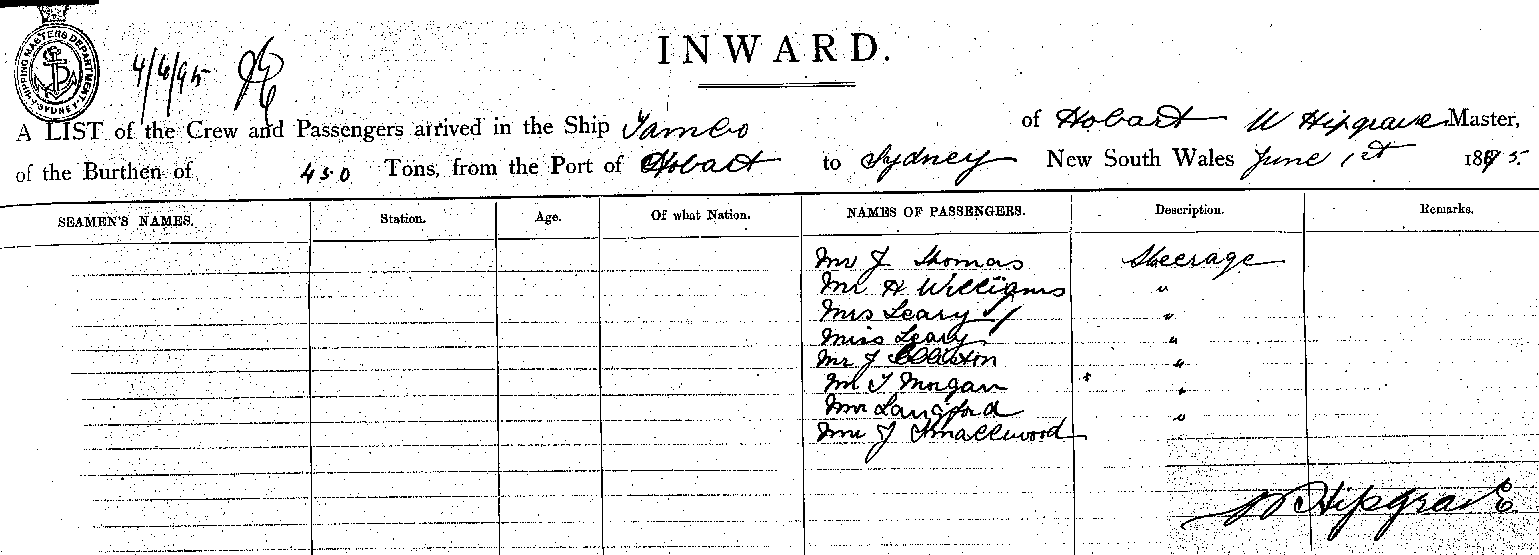 SHIPPING MASTERS DEPARTMENT. SYDNEY.
4/6/95
INWARD.
A LIST of the Crew and Passengers arrived in the Ship Tambo of Hobart W Hipgrave Master,
of the Burthen of 450 Tons, from the Port of Hobart to Sydney New South Wales June 1st 1895.
SEAMEN'S NAMES. Station. Age. Of what Nation. NAMES OF PASSENGERS. Description. Remarks.
Mr J Thomas Steerage
Mr H Williams "
Mrs Leary "
Miss Leary "
Mr J Elliston "
Mr T Morgan "
Mr Langford "
Mr J Smallwood
W Hipgrave